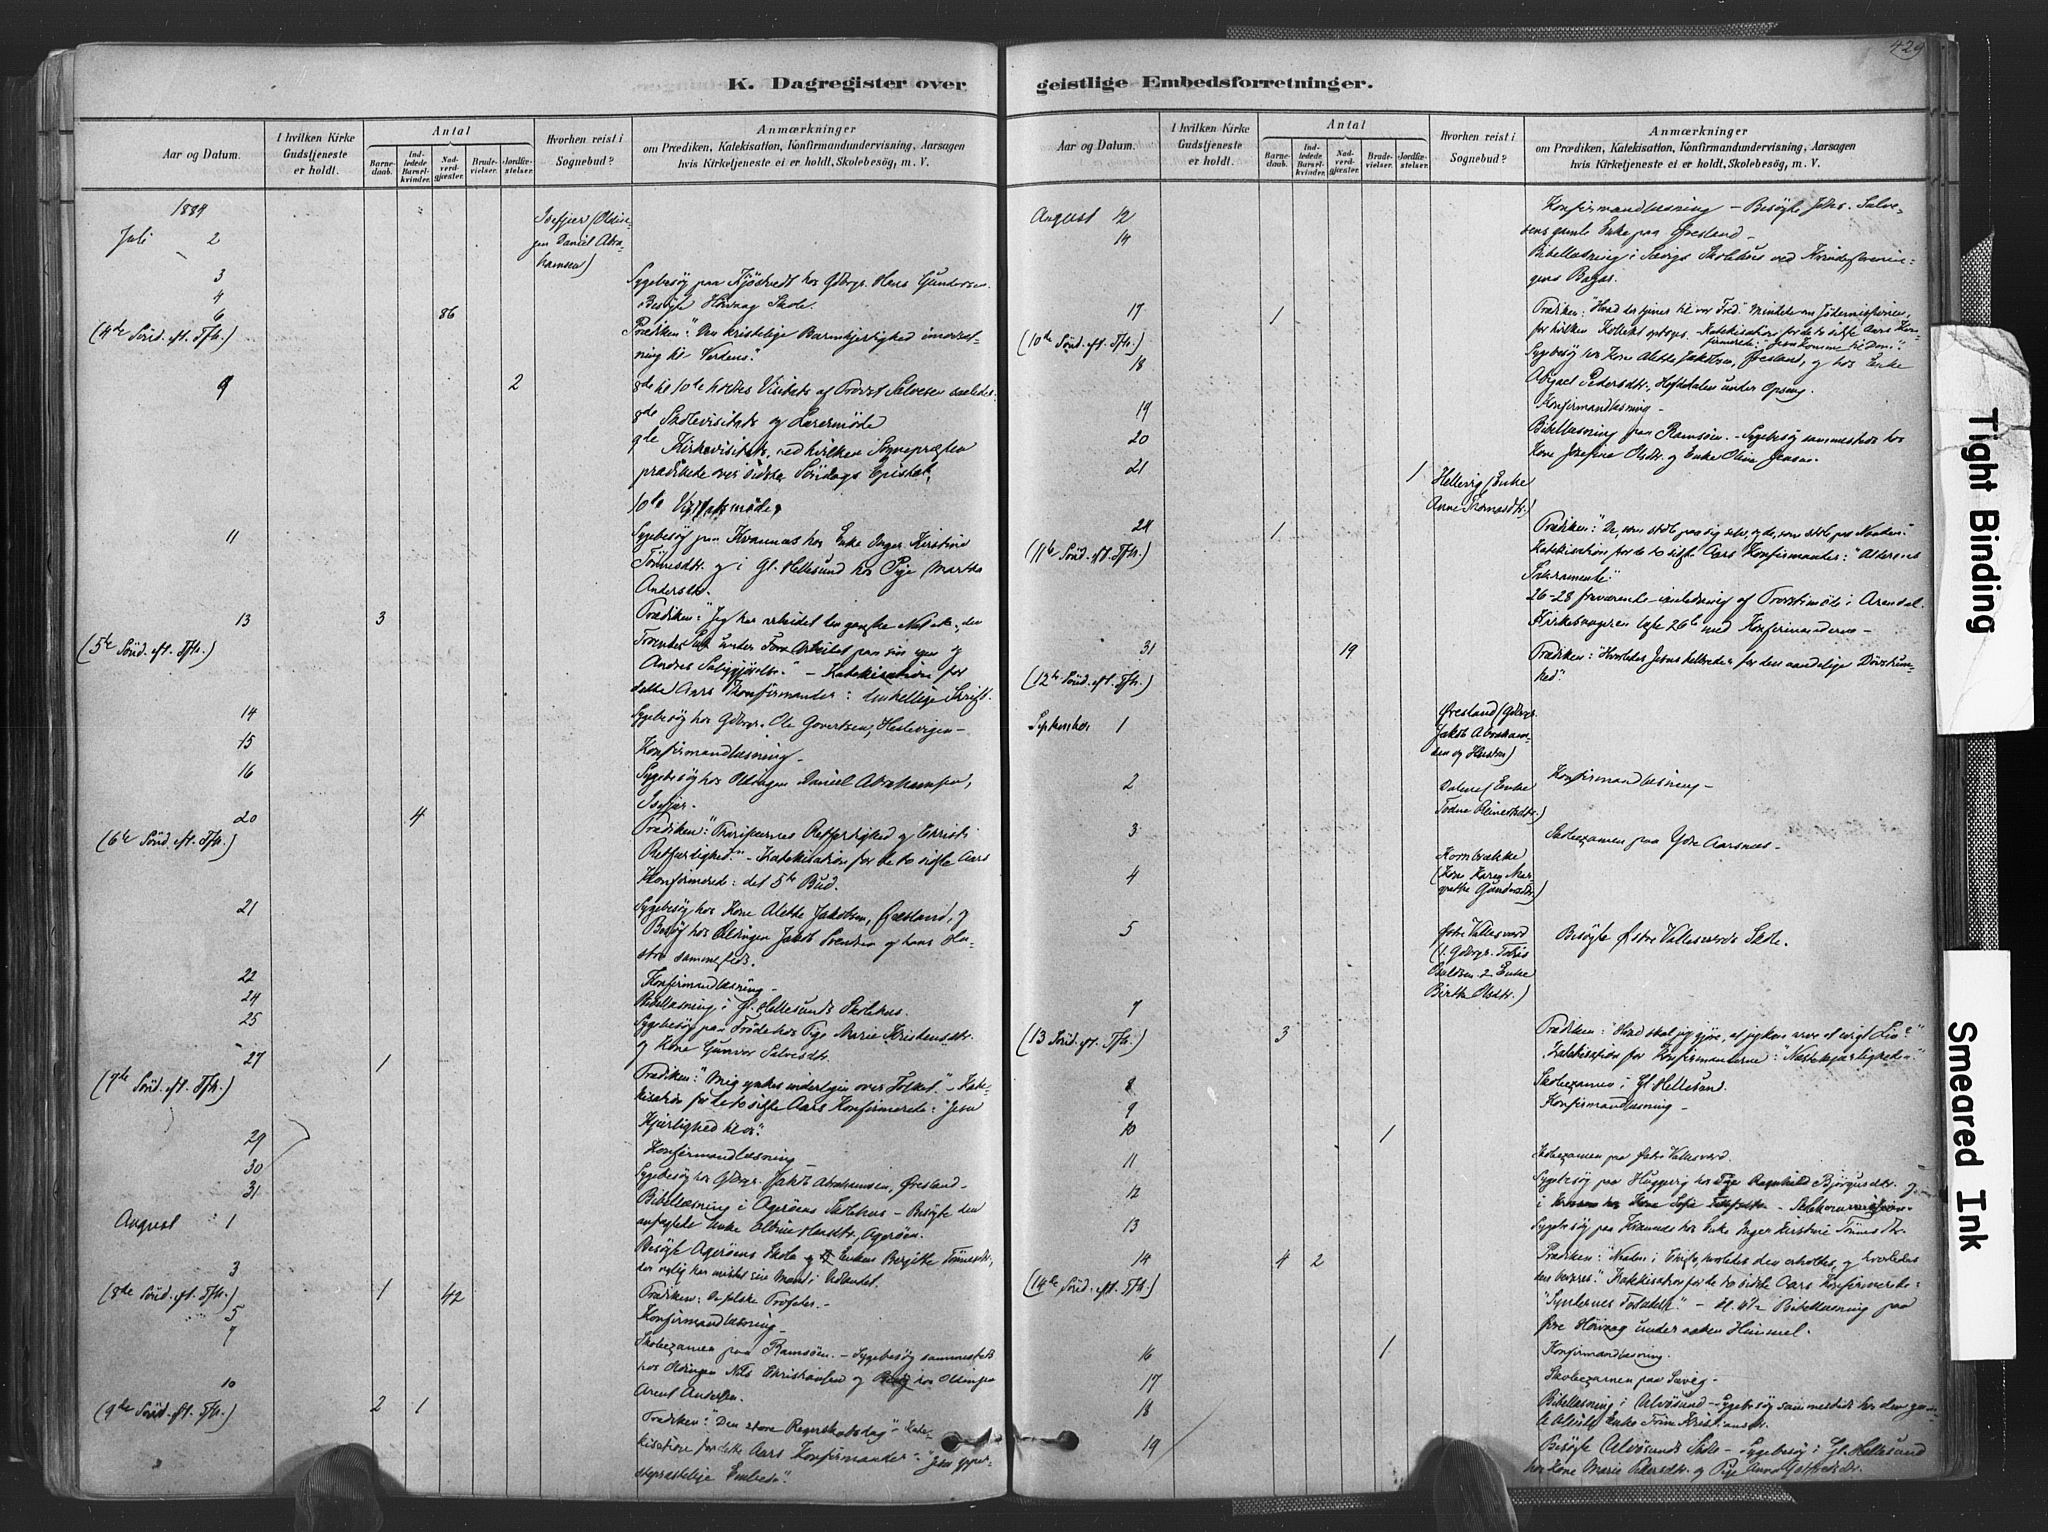 429
K. Dagregister over geistlige Embedsforretninger.
Aar og Datum.
I hvilken Kirke Gudstjeneste er holdt.
Antal
Barnedaab.
Indledede Barselkvinder.
Nadverdgjæster.
Brudevielser.
Jordfæstelser.
Hvorhen reist i Sognebud?
Anmærkninger
om Prædiken, Katekisation, Konfirmandundervisning, Aarsagen
hvis Kirketjeneste ei er holdt, Skolebesög, m. V.
1884
Juli 2
Isefjær (Oldin-
gen Daniel Abra-
hamsen)
3
Sygebesög paa Kjöstvedt hos Gdbrgr. Hans Gundersen.
4
Besögte Hövaag Skole.
6 86
(4de Sönd. eft. Tfh.)
Prædiken: "Den kristelige Barmhjertighed i modsæt-
ning til Verdens."
9 2
8de til 10de holdtes Visitats af Provst Salvesen saaledes:
8de Skolevisitats og Lærermöde
9de Kirkevisitats, ved hvilken Sognepræsten
prædikede over sidste Söndags Epistel,
10de Visitatsmöde.
11
Sygebesög paa Kvannæs hos Enke Inger Kirstine
Tönnesdtr. og i Gl. Hellesund hos Pige Marthe
Andersdtr.
13 3
(5te Sönd. eft. Tfh.)
Prædiken: "Jeg har arbeidet den ganske Nat etc., den
Troendes under Arbeidet paa sin egen og
Andres Saliggjörelse." - Katekisation for
dette Aars Konfirmander: den hellige Skrift.
14
Sygebesög hos Gdbrgr. Ole Govertsen, Heslevigen -
15
Konfirmandlæsning -
16
Sygebesög hos Oldingen Daniel Abrahamsen,
Isefjær.
20 4
(6te Sönd. eft. Tfh.)
Prædiken: "Farisæernes Retfærdighed og Christi
Retfærdighed." - Katekisation for de to sidste Aars
Konfirmerede: det 5te Bud.
21
Sygebesög hos Kone Alette Jakobsen, Öresland, og
Besög hos Oldingen Jakob Svendsen og hans Hu-
stru sammesteds.
22
Konfirmandlæsning -
24
Bibellæsning i Gl. Hellesunds Skolehus.
25
Sygebesög paa hos Pige Marie Kristensdtr.
og Kone Gunvor Salvesdtr.
27 1
(7de Sönd. eft. Tfh.)
Prædiken: "Mig ynkes inderligen over Folket" - Kate-
kisation for de to sidste Aars Konfirmerede: "Jesu
Kjærlighed til os."
29
Konfirmandlæsning
30
Sygebesög hos Gdbrgr. Jakob Abrahamsen, Öresland -
31
Bibellæsning i Ageröens Skolehus - Besögte den
Enke Hansdtr., Ageröen.
August 1
Besögte Ageröens Skole og Enken Bergitte Tönnesdtr.,
der nylig har mistet sin Mand i Udlandet.
3 1 42
(8de Sönd. eft. Tfh.)
Prædiken: De falske Profeter. -
5
Konfirmandlæsning -
7
Skoleexamen paa Ramsöen. - Sygebesög sammesteds
hos Oldingen Nils Christiansen og hos Oldingen
Arent Andersen.
10 2 1
(9de Sönd. eft. Tfh.)
Prædiken: "Den store Regnskabsdag" - Kate-
kisation for dette Aars Konfirmander: "Jesu ypper-
stepræstelige Embede".
K. Dagregister over geistlige Embedsforretninger.
Aar og Datum.
I hvilken Kirke Gudstjeneste er holdt.
Antal
Barnedaab.
Indledede Barselkvinder.
Nadverdgjæster.
Brudevielser.
Jordfæstelser.
Hvorhen reist i Sognebud?
Anmærkninger
om Prædiken, Katekisation, Konfirmandundervisning, Aarsagen
hvis Kirketjeneste ei er holdt, Skolebesög, m. V.
August 12
Konfirmandlæsning - Besögte Salve-
sens gamle Enke paa Öresland -
14
Bibellæsning i Sævigs Skolehus ved Kvindeforenin-
gens Bazar.
17 1
(10de Sönd. eft. Tfh.)
Prædiken: "Hvad der tjener til vor Fred". Mindede om Jödemissionen,
for hvilken Kollekt optoges. Katekisation for de to sidste Aars Kon-
firmerede: "Jesu Komme til Dom."
18
Sygebesög hos Kone Alette Jakobsen, Öresland, og hos Enke
Abigael Pedersdtr., under Opsing.
19
Konfirmandlæsning -
20
Bibellæsning paa Ramsöen. - Sygebesög sammesteds hos
Kone Josefine Olsdtr. og Enke Oline Jensen.
21 1
Hellevig (Enke
Anne Thomasdtr.)
24 1
(11te Sönd. eft. Tfh.)
Prædiken: "De, som stole paa sig selv, og de, som stole paa Naaden".
Katekisation for de to sidste Aars Konfirmander: "Alterens
Sakramente".
26-28 fraværende i Anledning af Provstimöde i Arendal.
Kirkesangeren læste 26de med Konfirmanderne -
31 19
(12te Sönd. eft. Tfh.)
Prædiken: "Hvorledes Jesus helbreder for den aandelige Dövstum-
hed."
September 1
Öresland (Gdbrgr.
Jakob Abraham-
sen og Hustru)
2
Dalene (Enke
Todne Reinertsdtr.)
Konfirmandlæsning -
3
Skoleexamen paa Ydre Aarsnæs -
4
Kornbrække
(Kone Karen Mar-
grethe Gundersdtr.)
5
Östre Vallesværd
(1. Gdbrgr. Tobias
2. Enke
Birthe Olsdtr.)
Besögte Östre Vallesværds Skole.
7 3
(13 Sönd. eft. Tfh.)
Prædiken: "Hvad skal jeg gjöre, at jeg kan arve et evigt Liv?"
Katekisation for Konfirmanderne: "Næstekjærligheden."
8
Skoleexamen i Gl. Hellesund.
9
Konfirmandlæsning -
10 1
11
Skoleexamen paa Östre Vallesværd.
12
Sygebesög paa hos Pige Ragnhild Björgusdtr. og
i hos Kone Sofie
13
Sygebesög paa Kvannæs hos Enke Inger Kirstine Tönnesdtr.
14 4 2
(14de Sönd. eft. Tfh.)
Prædiken: "Naaden i Christo, hvorledes den erholdes, og hvorledes
den bevares". Katekisation for de to sidste Aars Konfirmerede:
"Syndernes Forladelse." - Kl. 4½ Bibellæsning paa
Hövaag under aaben Himmel.
16 1
Konfirmandlæsning.
17
Skoleexamen paa Sævig -
18
Bibellæsning i Alvösund - Sygebesög sammesteds hos den gamle
Enke
19
Besögte Alvösunds Skole - Sygebesög i Gl. Hellesund
hos Kone Marie Pedersdtr. og Pige Anna
Tight Binding
Smeared Ink